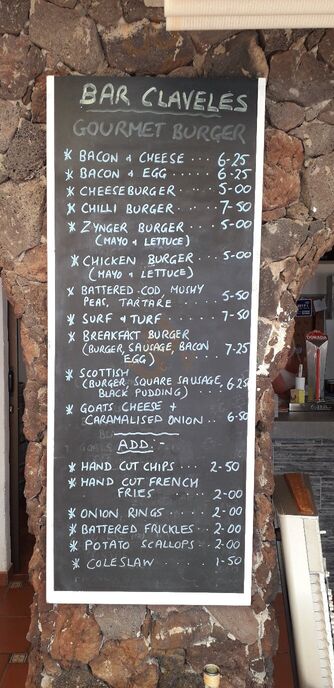 BAR CLAVELES
GOURMET BURGER
* BACON & CHEESE ... 6-25
* BACON & EGG ..... 6-25
* CHEESEBURGER .... 5-00
* CHILLI BURGER .... 7-50
* ZYNGER BURGER .... 5-00
(MAYO & LETTUCE)
* CHICKEN BURGER .... 5-00
(MAYO & LETTUCE)
* BATTERED COD, MUSHY
PEAS, TARTARE ..... 5-50
* SURF & TURF ..... 7-50
* BREAKFAST BURGER
(BURGER, SAUSAGE, BACON
EGG) .... 7-25
* SCOTTISH
(BURGER, SQUARE SAUSAGE,
BLACK PUDDING) 6-25
* GOATS CHEESE +
CARAMALISED ONION .. 6-50
ADD :-
* HAND CUT CHIPS ... 2-50
* HAND CUT FRENCH
FRIES .... 2-00
* ONION RINGS .... 2-00
* BATTERED FRICKLES .. 2-00
* POTATO SCALLOPS .. 2-00
* COLESLAW .... 1-50